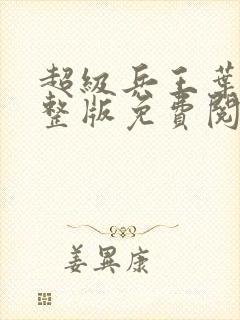 超级兵王葉
整版免費閱
姜異康